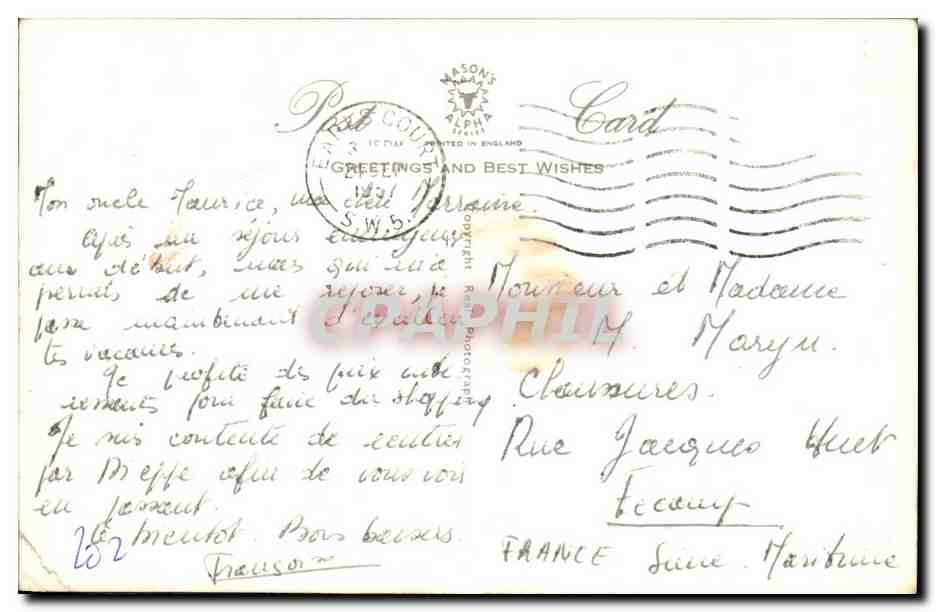 Post Card
MASON'S
ALPHA
SERIES
PRINTED IN ENGLAND
GREETINGS AND BEST WISHES
EARLS COURT
S.W.5.
Copyright Real Photograph
Mon oncle Maurice, ma Marraine.
un séjour
au début, mais qui m'a
permis de me reposer, je
passe maintenant d'excellen
tes vacances.
Je profite des prix inté
ressants pour faire du shopping
Je suis contente de rentrer
par Dieppe afin de vous voir
en passant.
A bientôt. Bons baisers.
Françoise
202
Monsieur et Madame
M.
Chaussures.
Rue Jacques Huet
Fecamp
FRANCE Seine Maritime
CPAPHIL